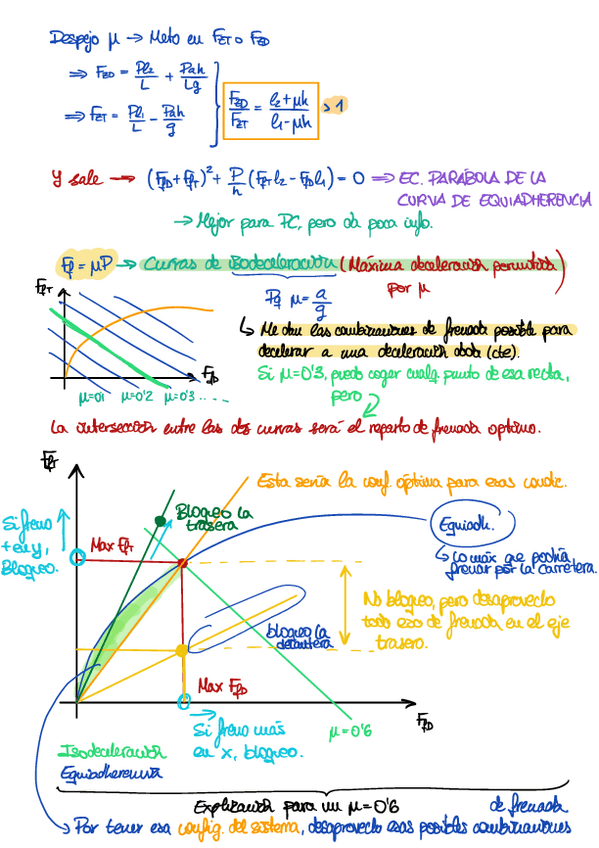 Despejo μ → Meto en FZT o FZD
⇒ FZD = Pl2/L + Pah/Lg
⇒ FZT = Pl1/L - Pah/g
FZD/FZT = l2+μh/l1-μh > 1
Y sale → (FφD+FφT)² + P/h (FφT l2 - FφD l1) = 0 ⇒ EC. PARÁBOLA DE LA
CURVA DE EQUIADHERENCIA
→ Mejor para PC, pero da poca info.
Fφ = μP → Curvas de Isodeceleración (Máxima deceleración permitida
por μ)
Pq μ = a/g
↳ Me dan las combinaciones de frenada posible para
decelerar a una deceleración dada (cte).
Si μ=0'3, puedo coger cualq punto de esa recta,
pero
FφT
FφD
μ=0'1 μ=0'2 μ=0'3 ....
La intersección entre las dos curvas será el reparto de frenada óptimo.
FφT
Esta sería la conf. óptima para esas condic.
Bloqueo la
trasera
Equiadh.
↳ Lo máx que podría
frenar por la carretera.
Si freno
+ en y,
Bloqueo.
Max FφT
No bloqueo, pero desaprovecho
todo eso de frenada en el eje
trasero.
bloqueo la
delantera
Max FφD
FφD
Si freno más
en x, bloqueo.
μ=0'6
Isodeceleración
Equiadherencia
Explicación para un μ=0'6
→ Por tener esa config. del sistema, desaprovecho esas posibles combinaciones
de frenada